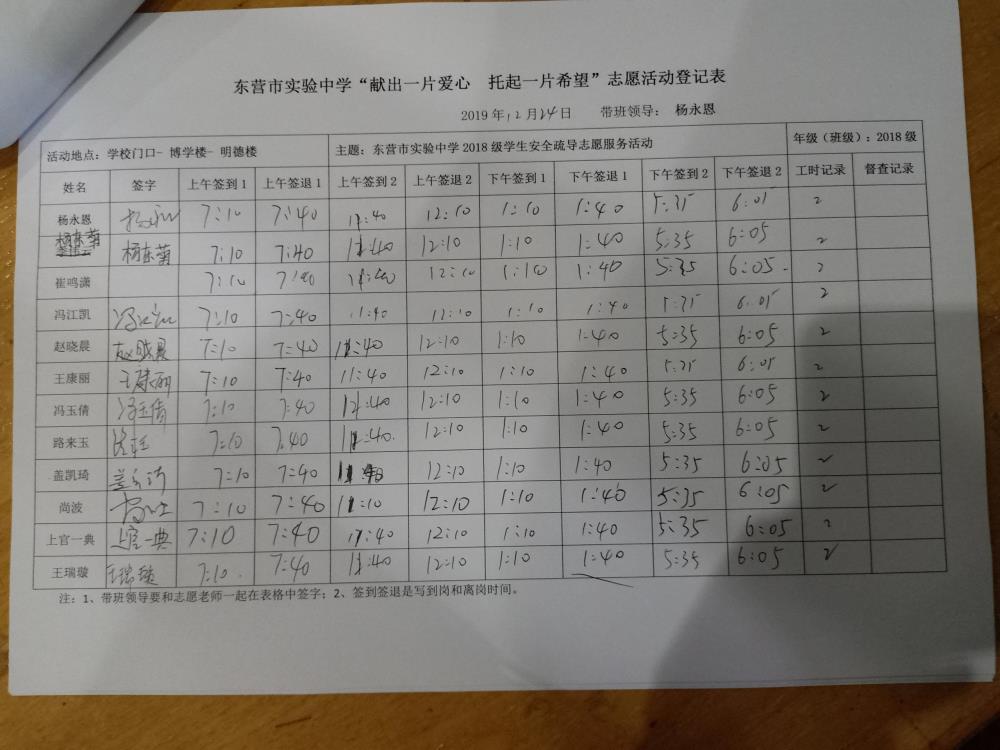 东营市实验中学“献出一片爱心 托起一片希望”志愿活动登记表
2019年12月24日 带班领导： 杨永恩
活动地点：学校门口- 博学楼- 明德楼 主题：东营市实验中学2018级学生安全疏导志愿服务活动 年级（班级）：2018级
姓名 签字 上午签到1 上午签退1 上午签到2 上午签退2 下午签到1 下午签退1 下午签到2 下午签退2 工时记录 督查记录
杨永恩 杨永恩 7:10 7:40 11:40 12:10 1:10 1:40 5:35 6:05 2
杨东菊 杨东菊 7:10 7:40 11:40 12:10 1:10 1:40 5:35 6:05 2
崔鸣潇 7:10 7:40 11:40 12:10 1:10 1:40 5:35 6:05 2
冯江凯 冯江凯 7:10 7:40 11:40 12:10 1:10 1:40 5:35 6:05 2
赵晓晨 赵晓晨 7:10 7:40 11:40 12:10 1:10 1:40 5:35 6:05 2
王康丽 王康丽 7:10 7:40 11:40 12:10 1:10 1:40 5:35 6:05 2
冯玉倩 冯玉倩 7:10 7:40 11:40 12:10 1:10 1:40 5:35 6:05 2
路来玉 7:10 7:40 11:40 12:10 1:10 1:40 5:35 6:05 2
盖凯琦 盖凯琦 7:10 7:40 11:40 12:10 1:10 1:40 5:35 6:05 2
尚波 尚波 7:10 7:40 11:10 12:10 1:10 1:40 5:35 6:05 2
上官一典 上官一典 7:10 7:40 11:40 12:10 1:10 1:40 5:35 6:05 2
王瑞璇 王瑞璇 7:10 7:40 11:40 12:10 1:10 1:40 5:35 6:05 2
注：1、带班领导要和志愿老师一起在表格中签字；2、签到签退是写到岗和离岗时间。